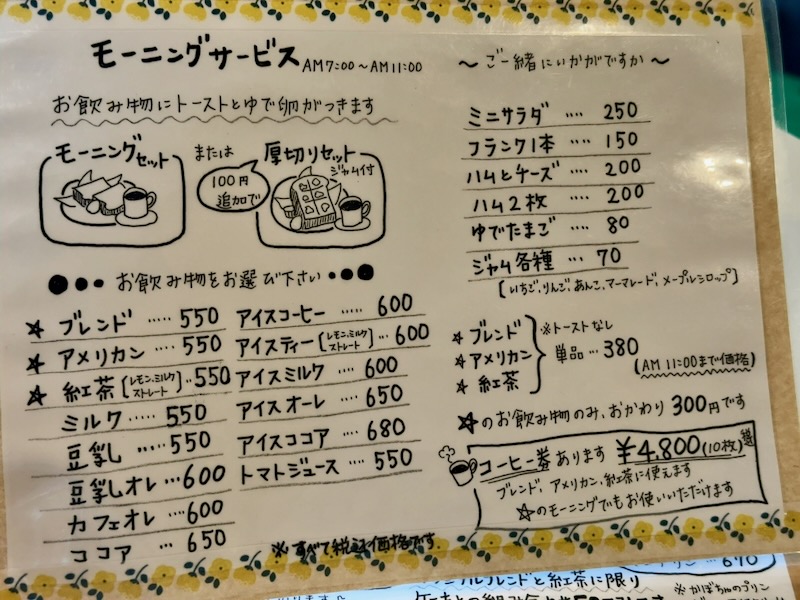 モーニングサービス AM7:00～AM11:00
お飲み物にトーストとゆで卵がつきます
モーニングセット
または
100円
追加で
厚切りセット
ジャム付
お飲み物をお選び下さい
☆ ブレンド ..... 550
☆ アメリカン ..... 550
☆ 紅茶 [レモン、ミルク ストレート] .. 550
ミルク ..... 550
豆乳 ..... 550
豆乳オレ ... 600
カフェオレ ... 600
ココア ... 650
アイスコーヒー ..... 600
アイスティー [レモン、ミルク ストレート] ... 600
アイスミルク .... 600
アイスオーレ .... 650
アイスココア .... 680
トマトジュース .... 550
※すべて税込価格です
～ ご一緒にいかがですか ～
ミニサラダ .... 250
フランク1本 .... 150
ハムとチーズ .... 200
ハム2枚 .... 200
ゆでたまご .... 80
ジャム各種 .... 70
[いちご、りんご、あんこ、マーマレード、メープルシロップ]
☆ ブレンド
☆ アメリカン
☆ 紅茶
※トーストなし
単品 ... 380
(AM 11:00まで価格)
☆のお飲み物のみ、おかわり 300円です
コーヒー券あります ¥4,800(10枚)
ブレンド、アメリカン、紅茶に使えます
☆のモーニングでもお使いいただけます
ブレンドと紅茶に限り
※かぼちゃのプリン